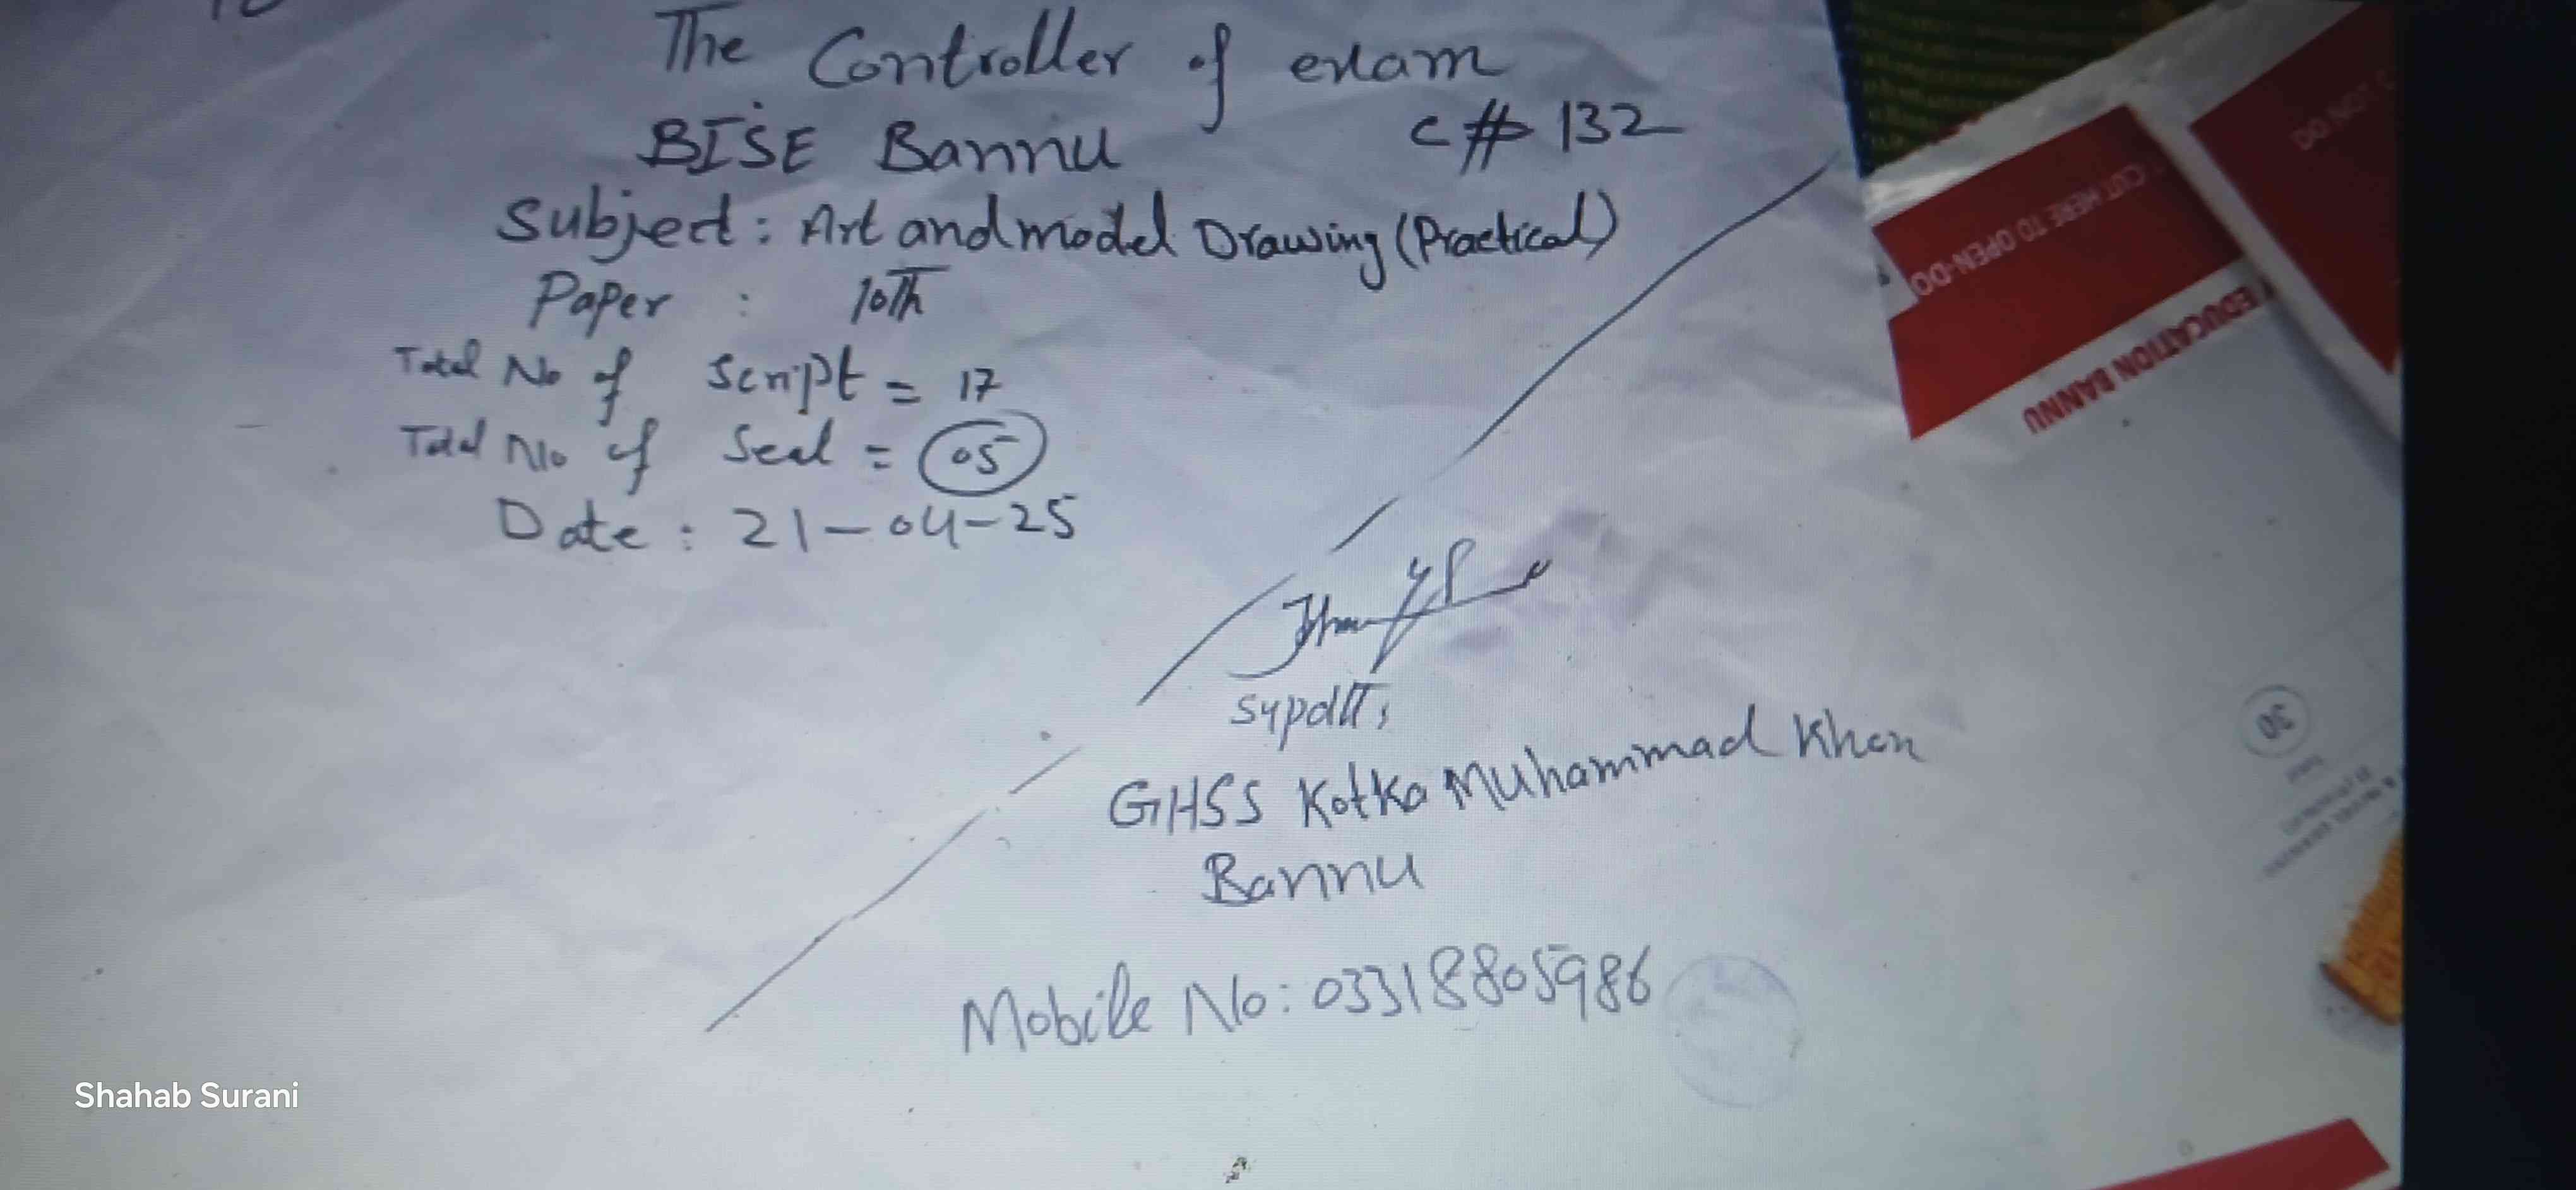 The Controller of exam
BISE Bannu C# 132
Subject: Art and model Drawing (Practical)
Paper : 10Th
Total No of Script = 17
Total No of Seal = 05
Date : 21-04-25
Supdtt,
GHSS Kotka Muhammad Khan
Bannu
Mobile No: 03318805986
CUT HERE TO OPEN-DO
EDUCATION BANNU
30
Shahab Surani